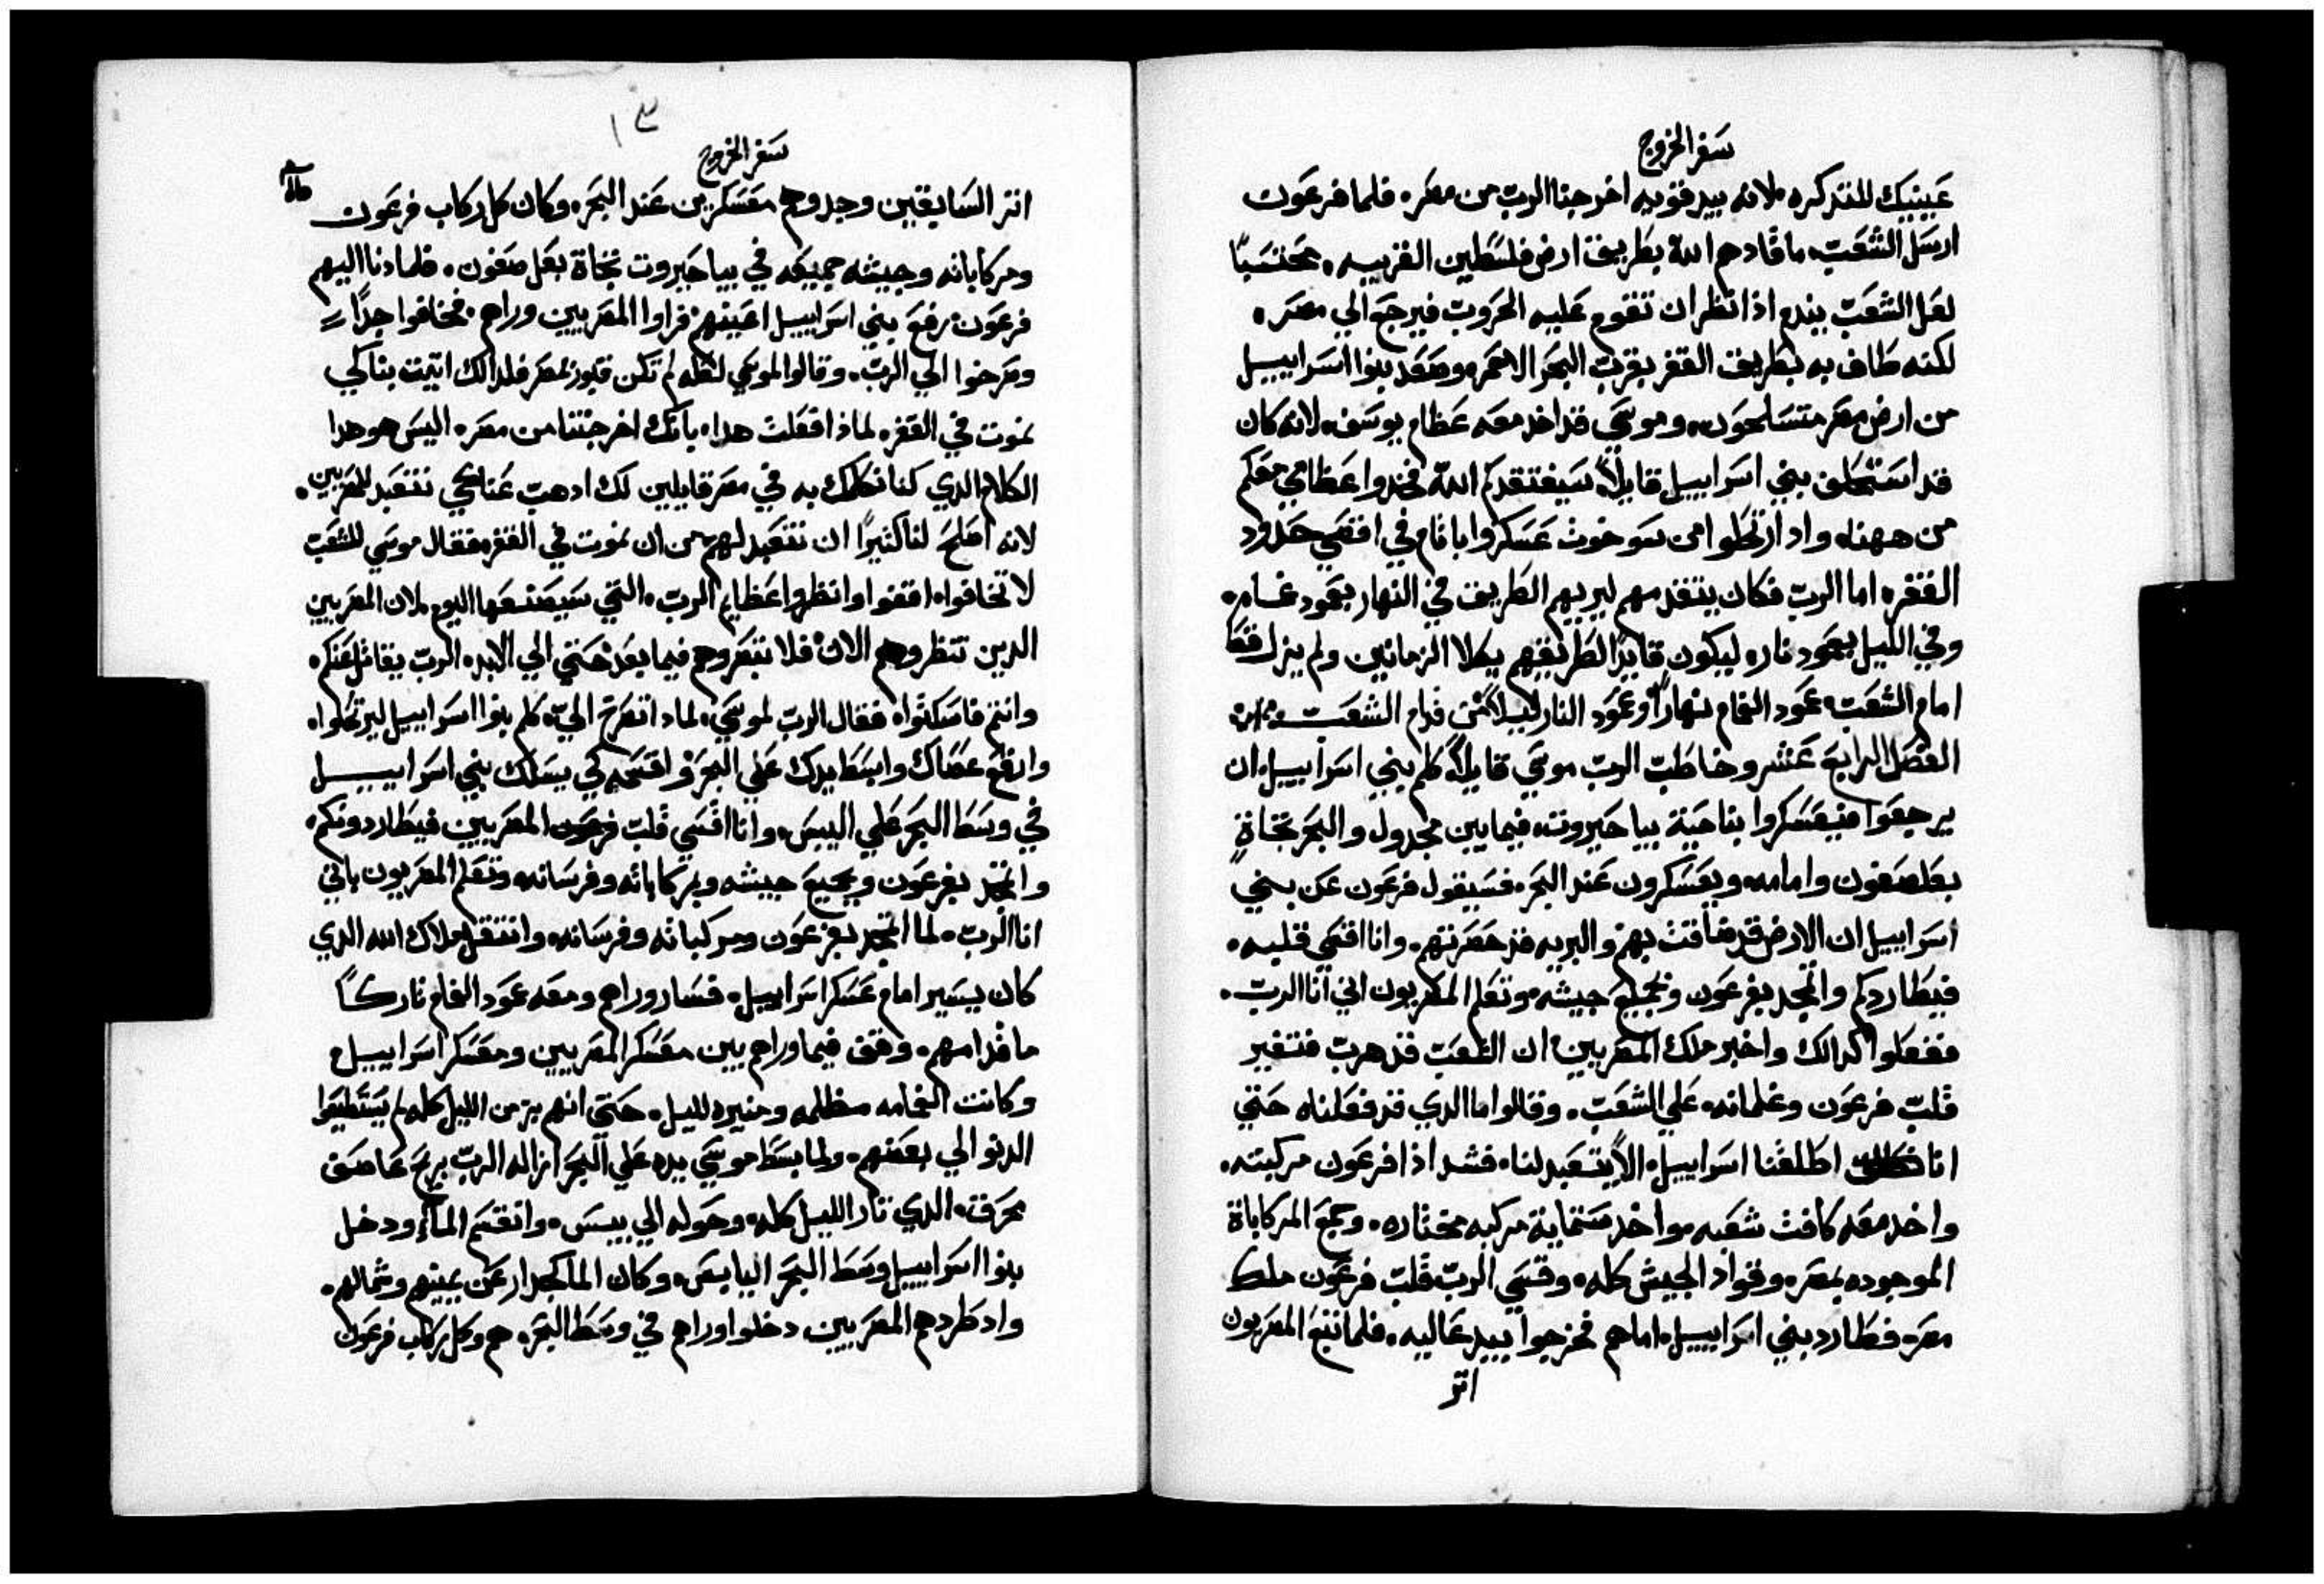 سفر الخروج
عينيك للتدكره ملانه بيد قويه اخرجنا الرب من مصر. فلما فرعون
ارسل الشعب، ما قادهم الله بطريق ارض فلسطين القريبه. محتسبًا
لعل الشعب يندم اذا نظر ان تقوم عليه الحروب فيرجع الي مصر.
لكنه طاف به بطريق القفر بقرب البحر الاحمر. وصعد بنوا اسراييل
من ارض مصر متسلحون. وموسي قد اخد معه عظام يوسف. لانه كان
قد استحلف بني اسراييل قايلًا. سيفتقدكم الله فخدوا عظامي معكم
من ههنا. واد ارتحلوا من سوخوت عسكروا باثام في اقصي حدود
القفر. اما الرب فكان يتقدمهم ليريهم الطريق في النهار بعمود غمام.
وفي الليل بعمود نار. ليكون قايدًا لطريقهم بكلا الزمانين ولم يزل قط
امام الشعب. عمود الغمام نهارًا وعمود النار ليلًا من قدام الشعب
الفصل الرابع عشر وخاطب الرب موسي قايلًا. كلم بني اسراييل. ان
يرجعوا فيعسكروا بناحية بيا حيروت. فيما بين مجدول والبحر تجاة
بعلصفون وامامه. ويعسكرون عند البحر. فسيقول فرعون عن بني
اسراييل ان الارض قد ضاقت بهم والبريه قد حصرتهم. وانا اقسي قلبه.
فيطاردكم واتمجد بفرعون وبجميع جيشه. وتعلم المصريون اني انا الرب.
ففعلوا كدالك واخبر ملك المصريين. ان الشعب قد هرب فتغير
قلب فرعون وغلمانه. علي الشعب. وقالوا ما الدي قد فعلناه حتي
انا اطلقنا اسراييل. الا يتعبد لنا. فشد اذا فرعون مركبته.
واخد معه كافت شعبه. واخد ستماية مركبه مختاره. وجمع المركاباة
الموجوده بمصر. وقواد الجيش كله. وقسي الرب قلب فرعون ملك
مصر. فطارد بني اسراييل. اماهم فخرجوا بيد عاليه. فلما تتبع المصريون
اتر
١٣
سفر الخروج
اتر السابقين وجدوهم معسكرين عند البحر. وكان كل ركاب فرعون
ومركاباته وجيشه جميعه في بيا حيروت تجاة بعل صفون. فلما دنا اليهم
فرعون. رفع بني اسراييل اعينهم. فراوا المصريين وراهم. فخافوا جدًا
وصرخوا الي الرب. وقالوا لموسي لعله لم تكن قبور بمصر فلدالك اتيت بنا كي
نموت في القفر. لماذا فعلت هدا. بانك اخرجتنا من مصر. اليس هو هدا
الكلام الدي كنا نكلمك به في مصر قايلين لك ادهب عنا كي نتعبد للمصريين.
لانه اصلح لنا كثيرًا ان نتعبد لهم. من ان نموت في القفر. فقال موسي للشعب
لا تخافوا. اقفوا وانظروا عظايم الرب. التي سيصنعها اليوم. لان المصريين
الدين تنظروهم الان. فلا تنصروهم فيما بعد حتي الي الابد. الرب يقاتل عنكم.
وانتم فاسكتوا. فقال الرب لموسي. لماد اتصرخ الي. كلم بنوا اسراييل ليرتحلوا.
وارفع عصاك وابسط يدك علي البحر. واقسمه كي يسلك بني اسراييل
في وسط البحر علي اليبس. وانا اقسي قلب فرعون المصريين فيطاردونكم.
واتمجد بفرعون وبجميع جيشه وبمركاباته وفرسانه. وتعلم المصريون باني
انا الرب. لما اتمجد بفرعون ومركباته وفرسانه. وانتقل ملاك الله الدي
كان يسير امام عسكر اسراييل. فسار وراهم ومعه عمود الغمام تاركًا
ما قدامهم. وقف فيما وراهم بين معسكر المصريين ومعسكر اسراييل.
وكانت الغمامه مظلمه ومنيره لليل. حتي انهم بزمن الليل كله لم يستطيعوا
الدنو الي بعضهم. ولما بسط موسي يده علي البحر ازاله الرب بريح عاصف
محرقة. الدي تار الليل كله. وحوله الي يبس. وانقسم الماء ودخل
بنوا اسراييل وسط البحر اليابس. وكان الما كجدار عن يمينهم وشمالهم.
واد طردهم المصريين دخلوا وراهم في وسط البحر. هم وكل ركاب فرعون